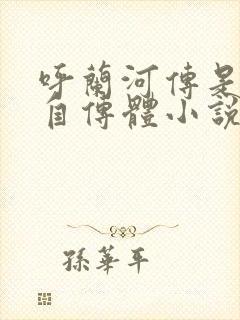 呼蘭河傳是
自傳體小說
孫華平